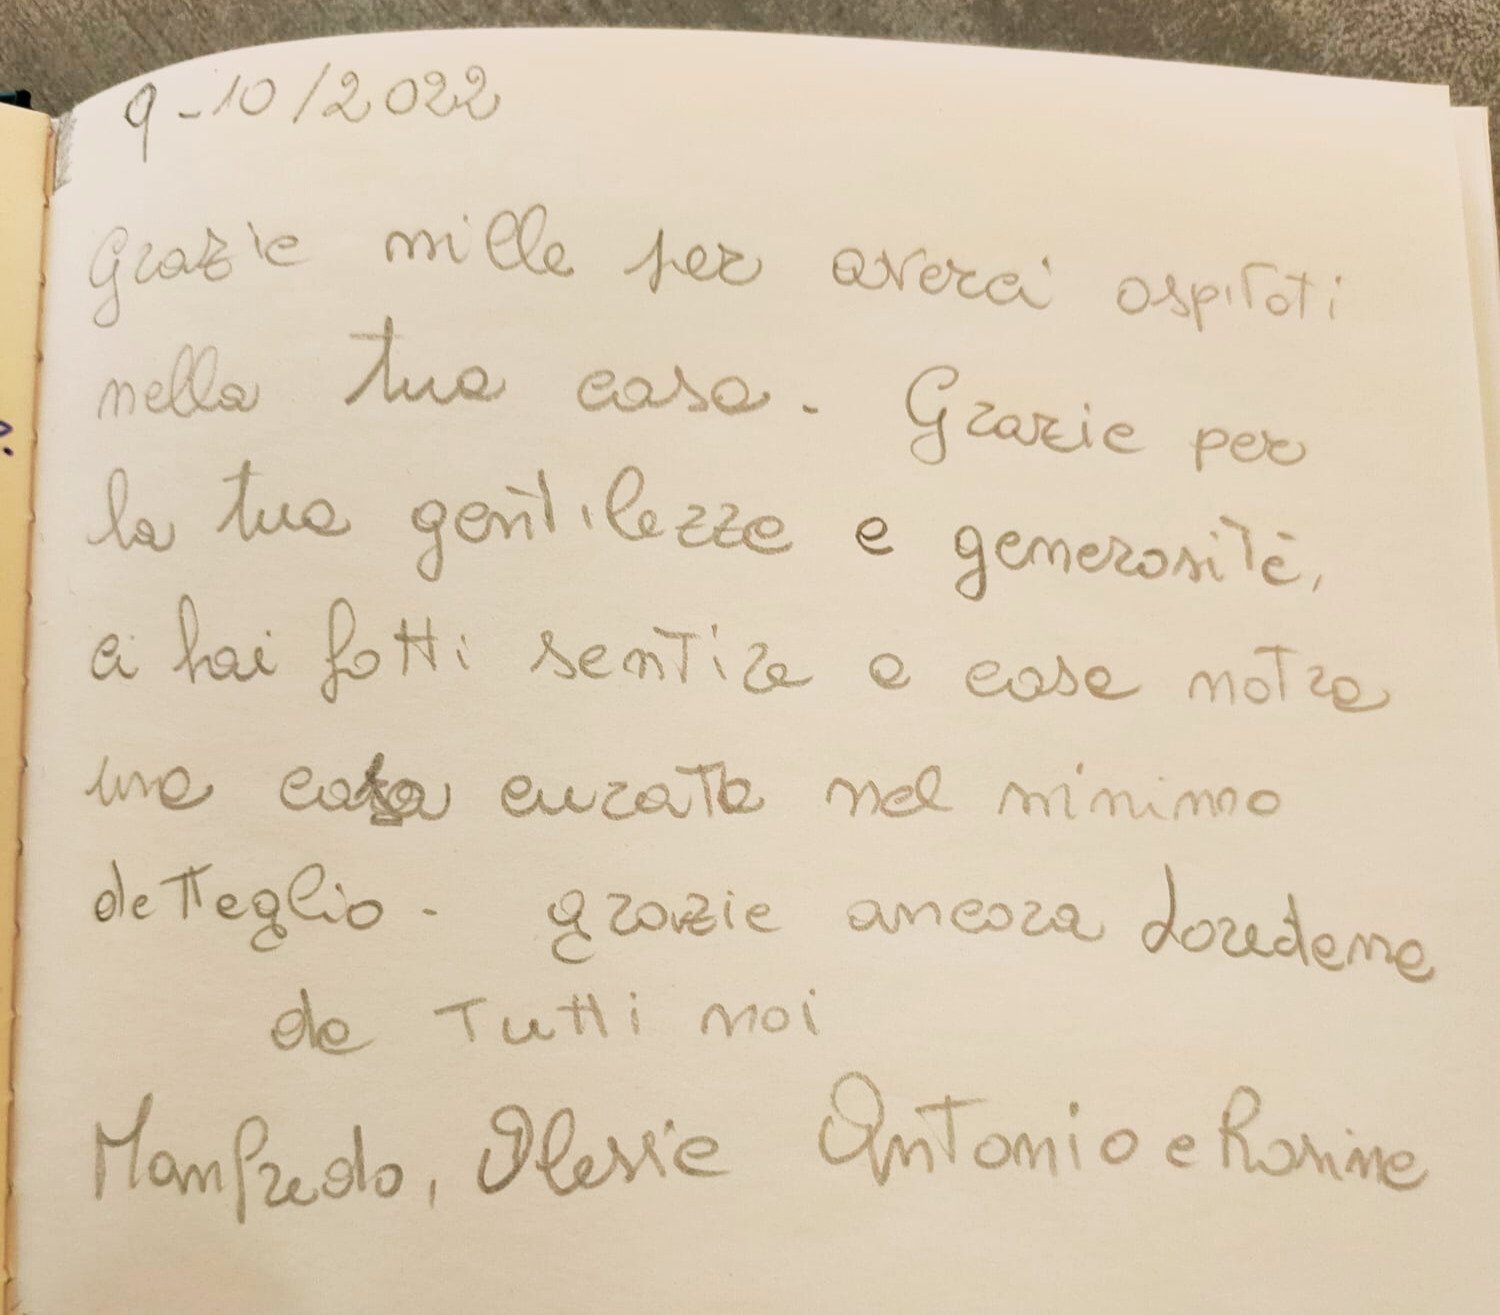 9-10/2022
Grazie mille per averci ospitati
nella tua casa. Grazie per
la tua gentilezza e generosità,
ci hai fatti sentire a casa notra
una casa curata nel minimo
detteglio. grazie ancora Loredana
da Tutti noi
Manfredo, Alessia Antonio e Rosina